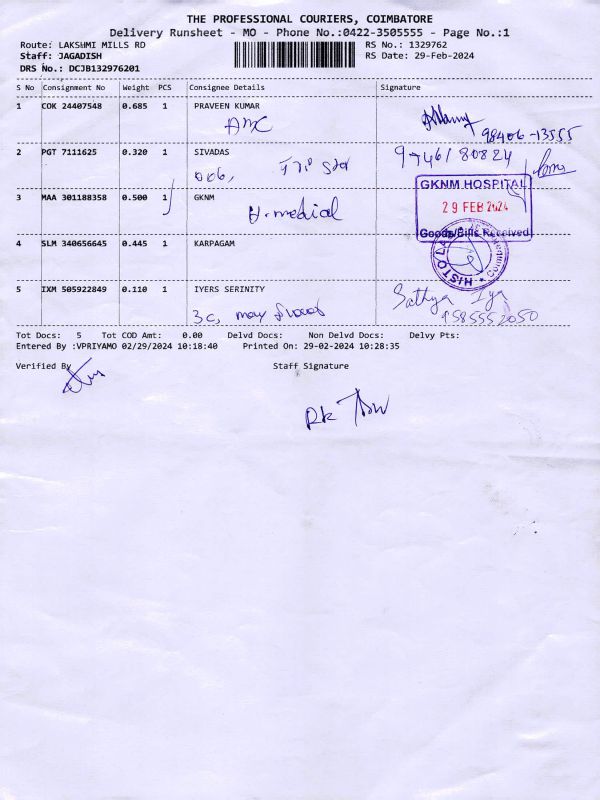 THE PROFESSIONAL COURIERS, COIMBATORE
Delivery Runsheet - MO - Phone No.:0422-3505555 - Page No.:1
Route: LAKSHMI MILLS RD RS No.: 1329762
Staff: JAGADISH RS Date: 29-Feb-2024
DRS No.: DCJB132976201
S No Consignment No Weight PCS Consignee Details Signature
1 COK 24407548 0.685 1 PRAVEEN KUMAR
AMC 98406-13555
2 PGT 7111625 0.320 1 SIVADAS 9746180824
3 MAA 301188358 0.500 1 GKNM
H-medical
GKNM HOSPITAL
29 FEB 2024
Goods/Bills Received
4 SLM 340656645 0.445 1 KARPAGAM
5 IXM 505922849 0.110 1 IYERS SERINITY
3c, Sathya
Tot Docs: 5 Tot COD Amt: 0.00 Delvd Docs: Non Delvd Docs: Delvy Pts:
Entered By :VPRIYAMO 02/29/2024 10:18:40 Printed On: 29-02-2024 10:28:35
Verified By Staff Signature